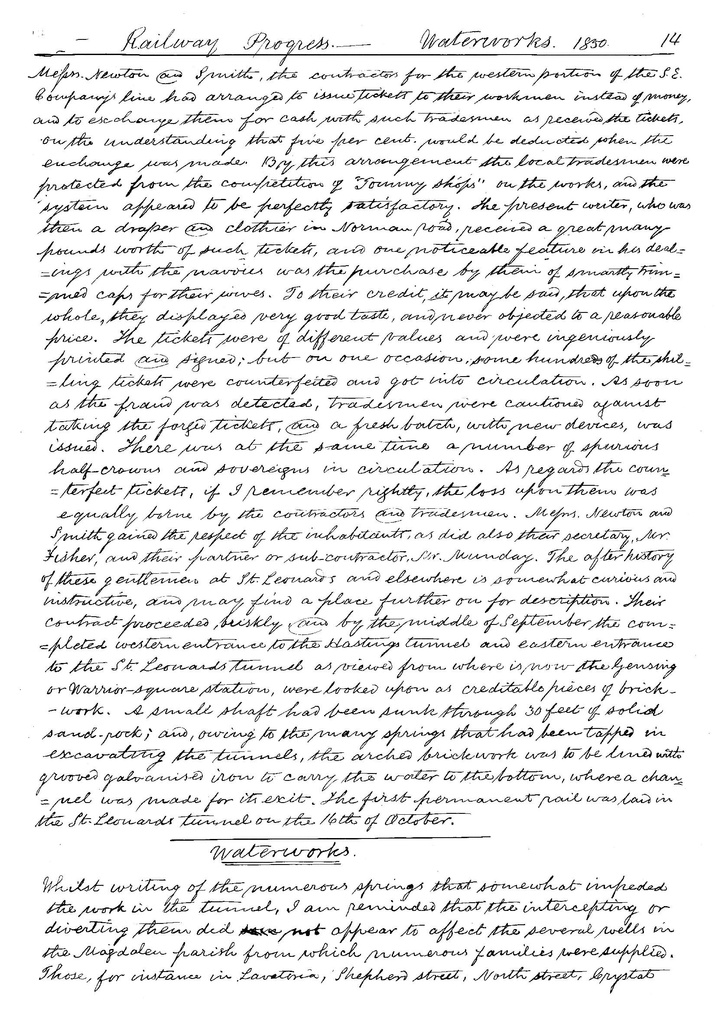 Railway Progress. — Waterworks. 1850. 14
Messrs. Newton and Smith, the contractors for the western portion of the S.E.
Company's line had arranged to issue tickets to their workmen instead of money,
and to exchange them for cash with such tradesmen as received the tickets,
on the understanding that five per cent. would be deducted when the
exchange was made. By this arrangement the local tradesmen were
protected from the competition of "Tommy shops" on the works, and the
system appeared to be perfectly satisfactory. The present writer, who was
then a draper and clothier in Norman road, received a great many
pounds worth of such tickets, and one noticeable feature in his deal=
=ings with the navvies was the purchase by them of smartly trim=
=med caps for their wives. To their credit, it may be said, that upon the
whole, they displayed very good taste, and never objected to a reasonable
price. The tickets were of different values and were ingeniously
printed and signed; but on one occasion, some hundreds of the shil=
=ling tickets were counterfeited and got into circulation. As soon
as the fraud was detected, tradesmen were cautioned against
taking the forged tickets, and a fresh batch, with new devices, was
issued. There was at the same time a number of spurious
half-crowns and sovereigns in circulation. As regards the coun=
=terfeit tickets, if I remember rightly, the loss upon them was
equally borne by the contractors and tradesmen. Messrs. Newton and
Smith gained the respect of the inhabitants, as did also their secretary, Mr.
Fisher, and their partner or sub-contractor, Mr. Munday. The after history
of these gentlemen at St. Leonards and elsewhere is somewhat curious and
instructive, and may find a place further on for description. Their
contract proceeded briskly and by the middle of September the com=
=pleted western entrance to the Hastings tunnel and eastern entrance
to the St. Leonards tunnel as viewed from where is now the Gensing
or Warrior-square station, were looked upon as creditable pieces of brick-
-work. A small shaft had been sunk through 30 feet of solid
sand-rock; and, owing to the many springs that had been tapped in
excavating the tunnels, the arched brickwork was to be lined with
grooved galvanised iron to carry the water to the bottom, where a chan=
=nel was made for its exit. The first permanent rail was laid in
the St. Leonards tunnel on the 16th of October.
Waterworks.
Whilst writing of the numerous springs that somewhat impeded
the work in the tunnel, I am reminded that the intercepting or
diverting them did not appear to affect the several wells in
the Magdalen parish from which numerous families were supplied.
Those, for instance in Lavatoria, Shepherd street, North street, Crystal